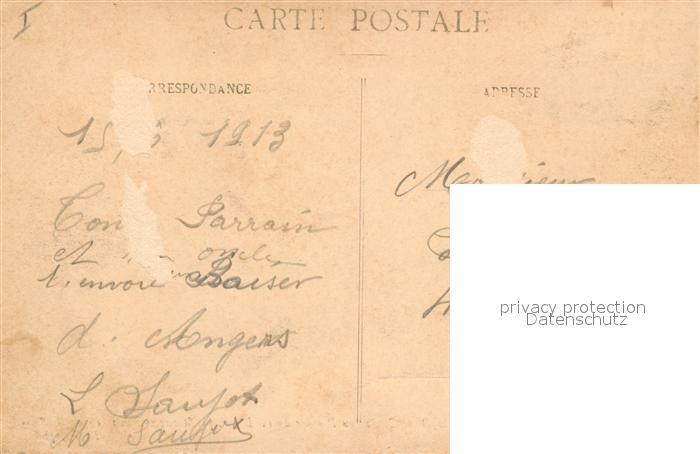 I
CARTE POSTALE
RRESPONDANCE
ADRESSE
1913
Ton Parrain
et oncle
t'envoie un Baiser
d'Angers
L Saujot
M Saujot
privacy protection
Datenschutz